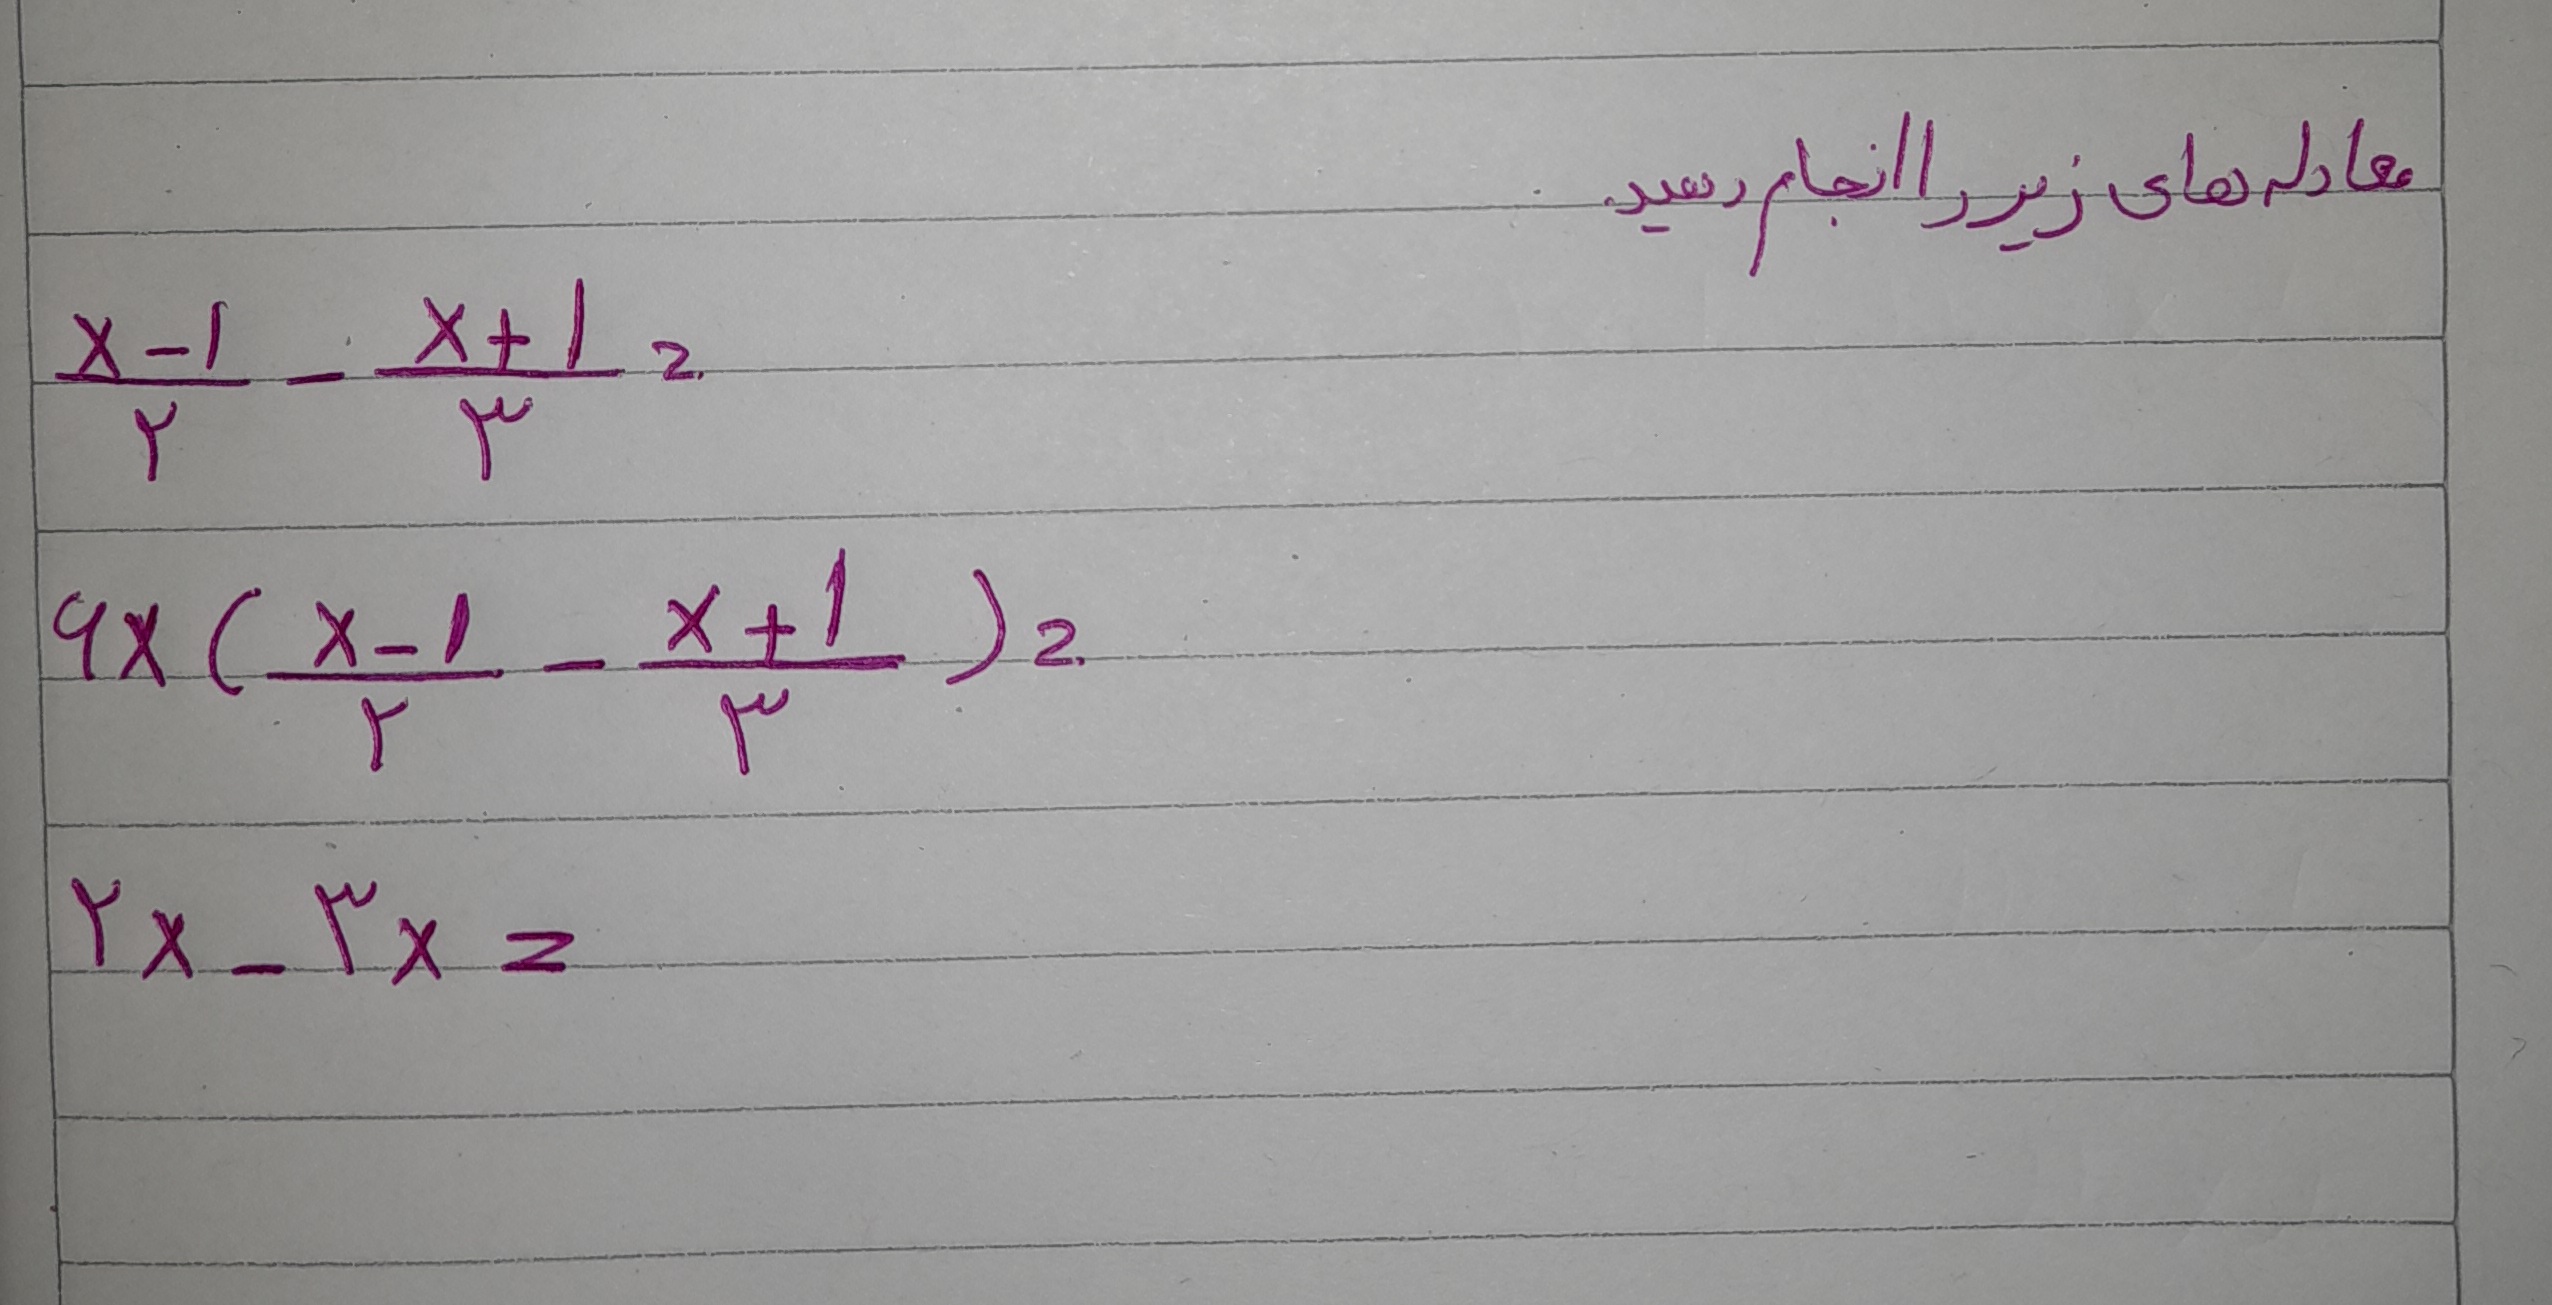 معادله های زیر را انجام دهید.
(x-۱)/۲ - (x+۱)/۳ =
۶×((x-۱)/۲ - (x+۱)/۳) =
۲x - ۳x =